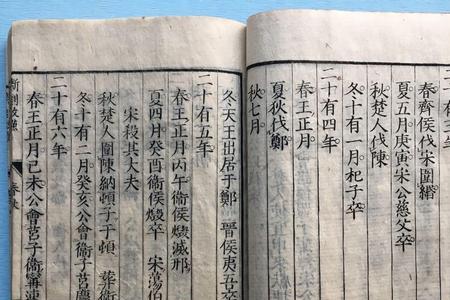 三年
春齊侯伐宋圍緡
夏五月庚寅宋公慈父卒
秋楚人伐陳
冬十有一月杞子卒
二十有四年
春王正月
夏狄伐鄭
秋七月
冬天王出居于鄭　晉侯夷吾卒
二十有五年
春王正月丙午衞侯燬滅邢
夏四月癸酉衞侯燬卒　宋蕩伯
宋殺其大夫
秋楚人圍陳納頓子于頓　葬衞
冬十有二月癸亥公會衞子莒慶
二十有六年
春王正月己未公會莒子衞甯速